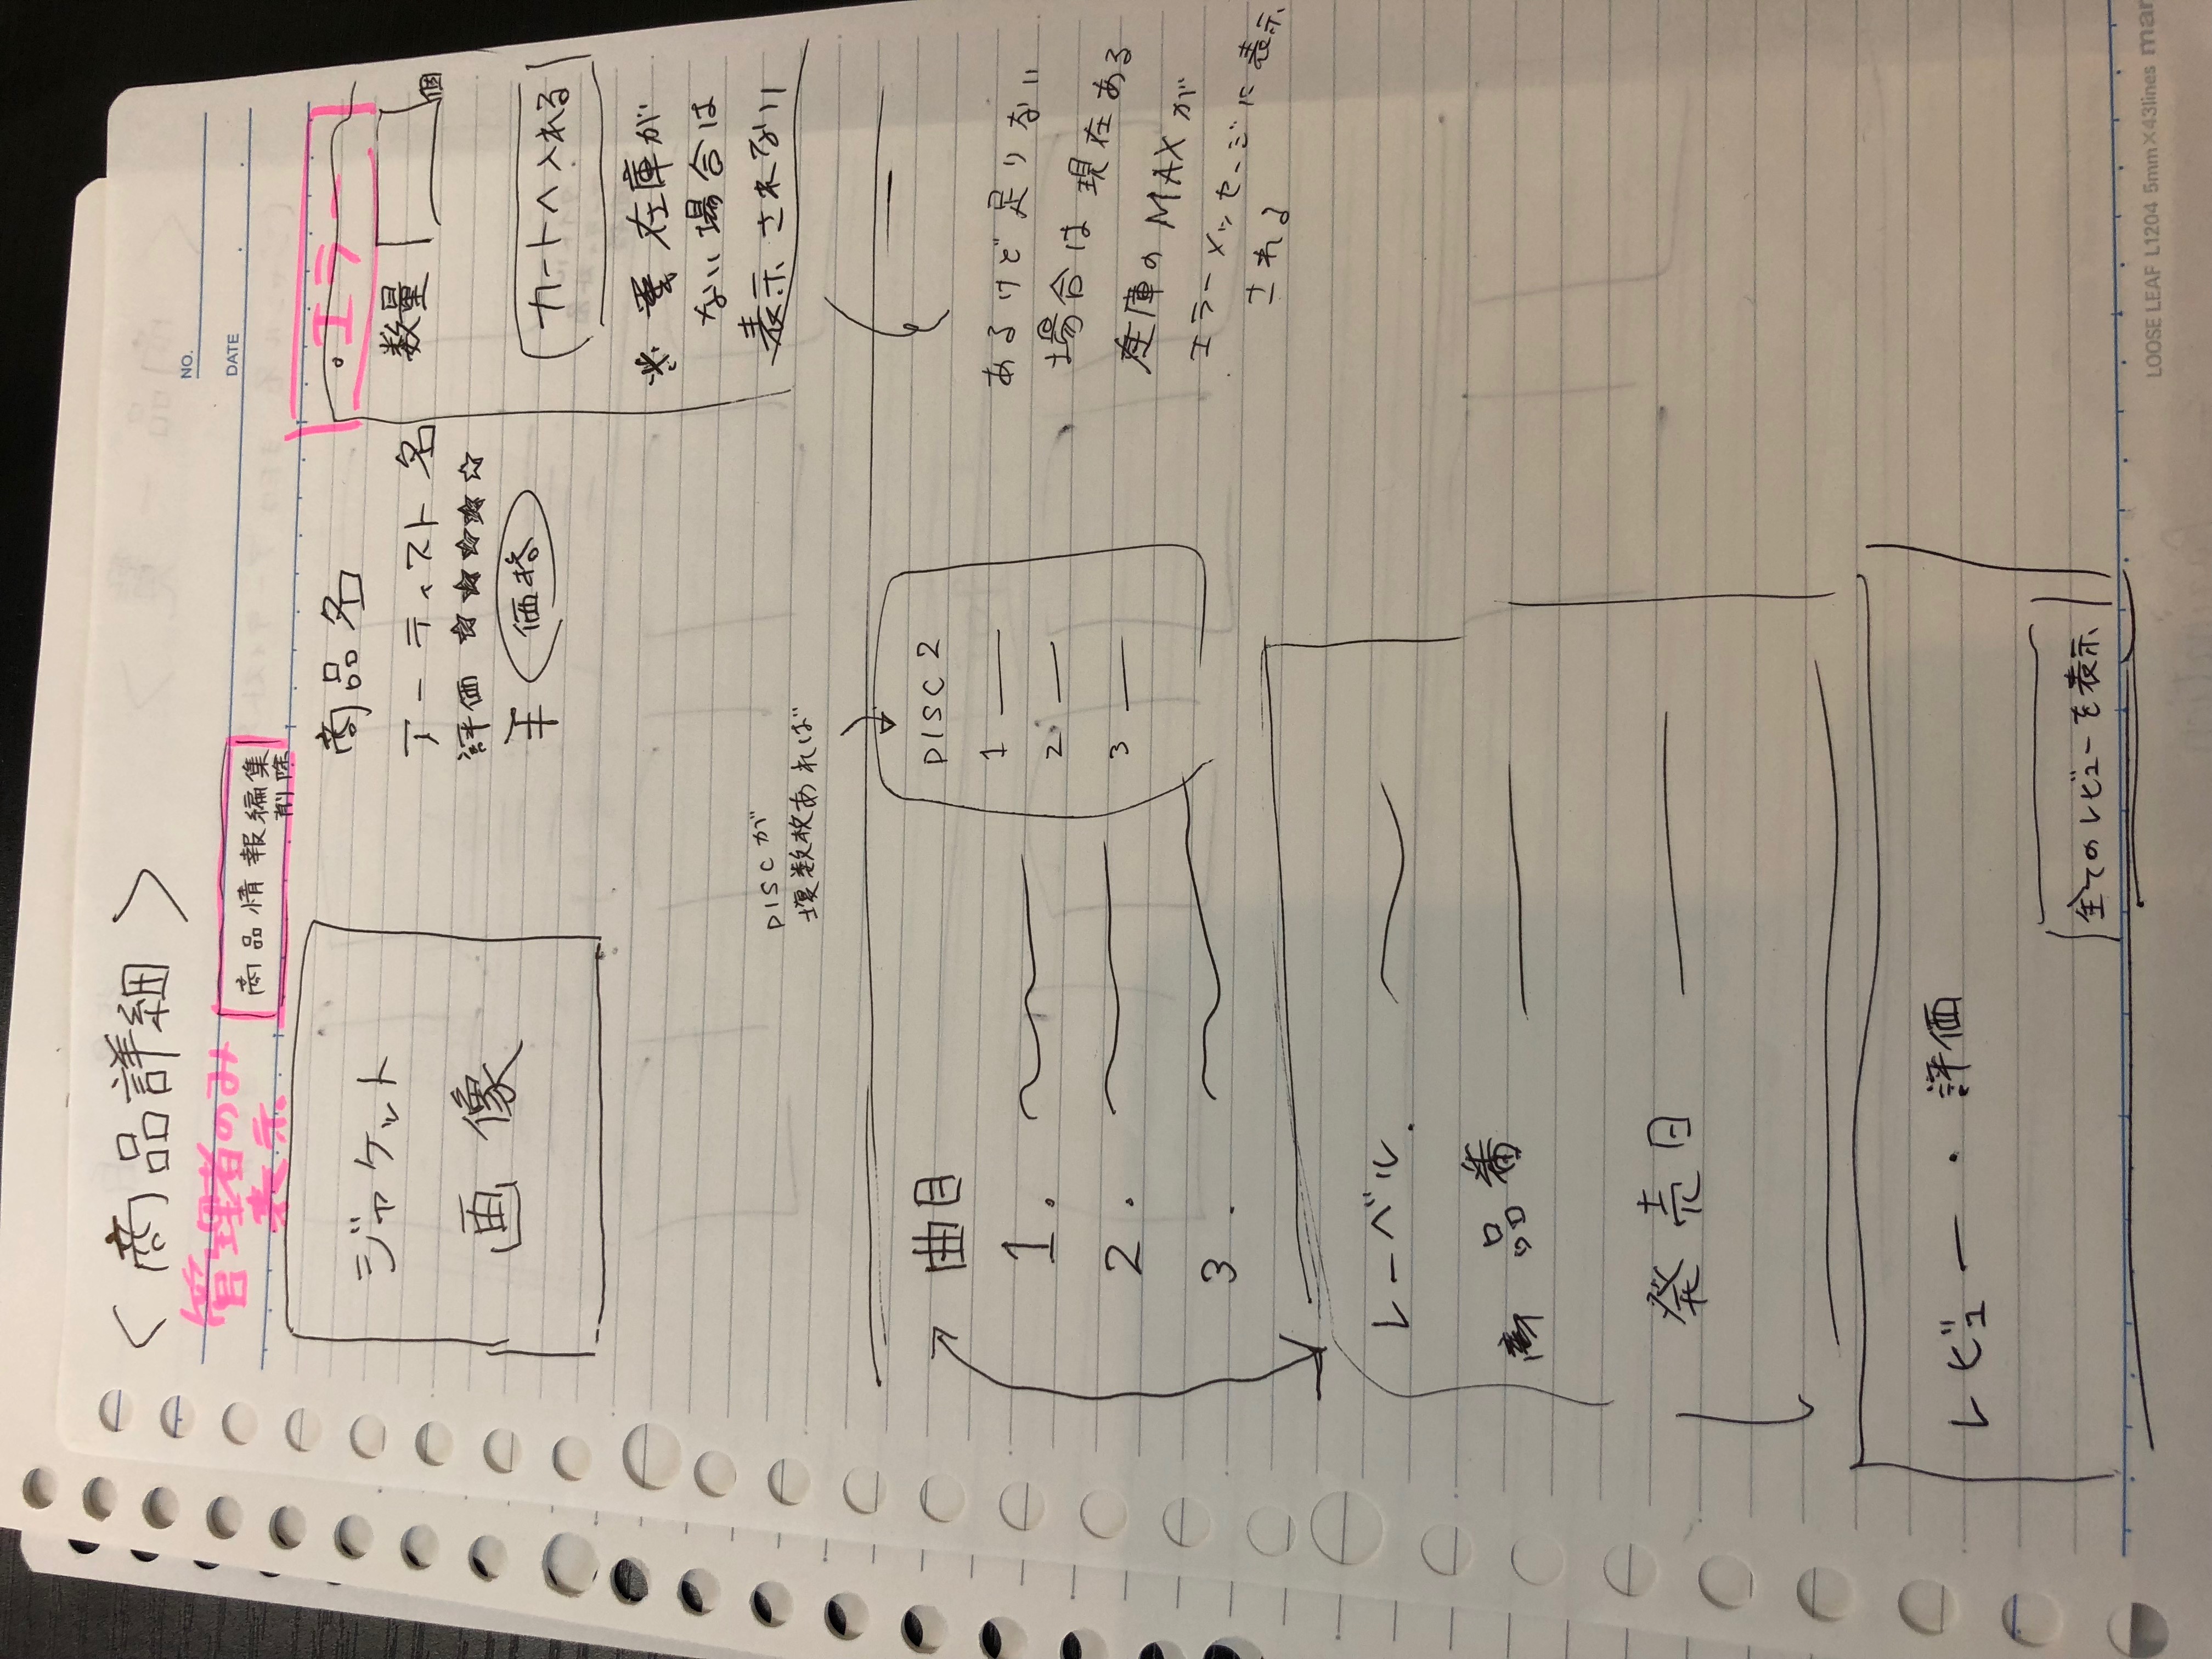 ＜商品詳細＞
NO.
DATE
管理者のみ
表示
商品情報編集
削除
ジャケット
画像
商品名
アーティスト名
評価 ★★★★☆
¥ 価格
・エラー
数量 個
カートへ入れる
※ 在庫が
ない場合は
表示されない
DISCが
複数枚あれば
曲目
1.
2.
3.
DISC 2
1
2
3
あるけど足りない
場合は現在ある
在庫のMAXが
エラーメッセージに表示
される
レーベル
品番
発売日
レビュー・評価
全てのレビューを表示
LOOSE LEAF L1204 5mm×43lines